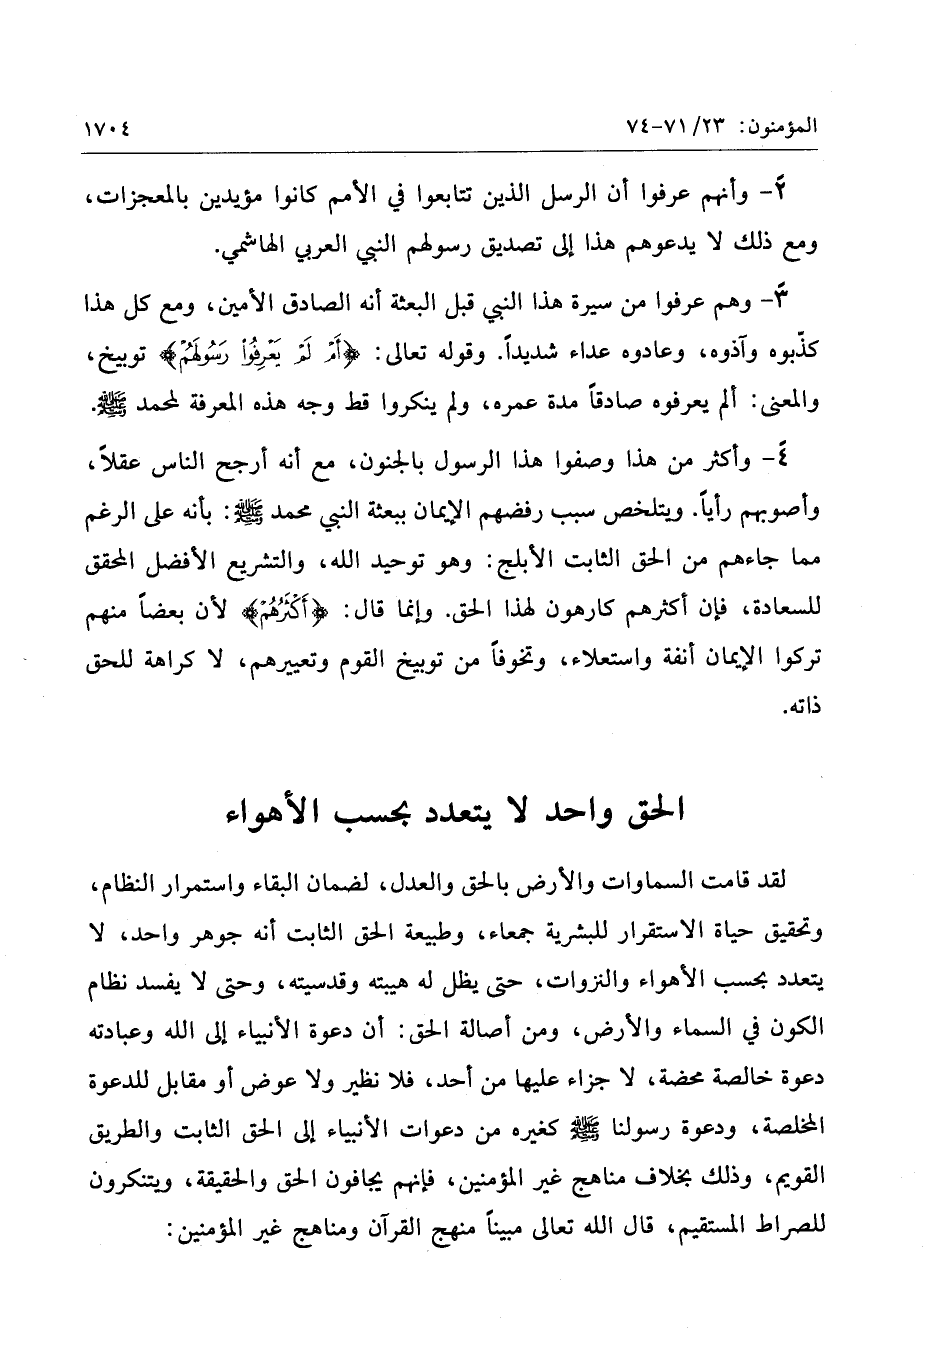 المؤمنون: ٢٣/ ٧١-٧٤ ١٧٠٤
٢ً- وأنهم عرفوا أن الرسل الذين تتابعوا في الأمم كانوا مؤيدين بالمعجزات،
ومع ذلك لا يدعوهم هذا إلى تصديق رسولهم النبي العربي الهاشمي.
٣ً- وهم عرفوا من سيرة هذا النبي قبل البعثة أنه الصادق الأمين، ومع كل هذا
كذّبوه وآذوه، وعادوه عداء شديداً. وقوله تعالى: ﴿أَمْ لَمْ يَعْرِفُوا۟ رَسُولَهُمْ﴾ توبيخ،
والمعنى: ألم يعرفوه صادقاً مدة عمره، ولم ينكروا قط وجه هذه المعرفة لمحمد ﷺ.
٤ً- وأكثر من هذا وصفوا هذا الرسول بالجنون، مع أنه أرجح الناس عقلاً،
وأصوبهم رأياً. ويتلخص سبب رفضهم الإيمان ببعثة النبي محمد ﷺ: بأنه على الرغم
مما جاءهم من الحق الثابت الأبلج: وهو توحيد الله، والتشريع الأفضل المحقق
للسعادة، فإن أكثرهم كارهون لهذا الحق. وإنما قال: ﴿أَكْثَرُهُمْ﴾ لأن بعضاً منهم
تركوا الإيمان أنفة واستعلاء، وتخوفاً من توبيخ القوم وتعييرهم، لا كراهة للحق
ذاته.
الحق واحد لا يتعدد بحسب الأهواء
لقد قامت السماوات والأرض بالحق والعدل، لضمان البقاء واستمرار النظام،
وتحقيق حياة الاستقرار للبشرية جمعاء، وطبيعة الحق الثابت أنه جوهر واحد، لا
يتعدد بحسب الأهواء والنزوات، حتى يظل له هيبته وقدسيته، وحتى لا يفسد نظام
الكون في السماء والأرض، ومن أصالة الحق: أن دعوة الأنبياء إلى الله وعبادته
دعوة خالصة محضة، لا جزاء عليها من أحد، فلا نظير ولا عوض أو مقابل للدعوة
المخلصة، ودعوة رسولنا ﷺ كغيره من دعوات الأنبياء إلى الحق الثابت والطريق
القويم، وذلك بخلاف مناهج غير المؤمنين، فإنهم يجافون الحق والحقيقة، ويتنكرون
للصراط المستقيم، قال الله تعالى مبيناً منهج القرآن ومناهج غير المؤمنين: